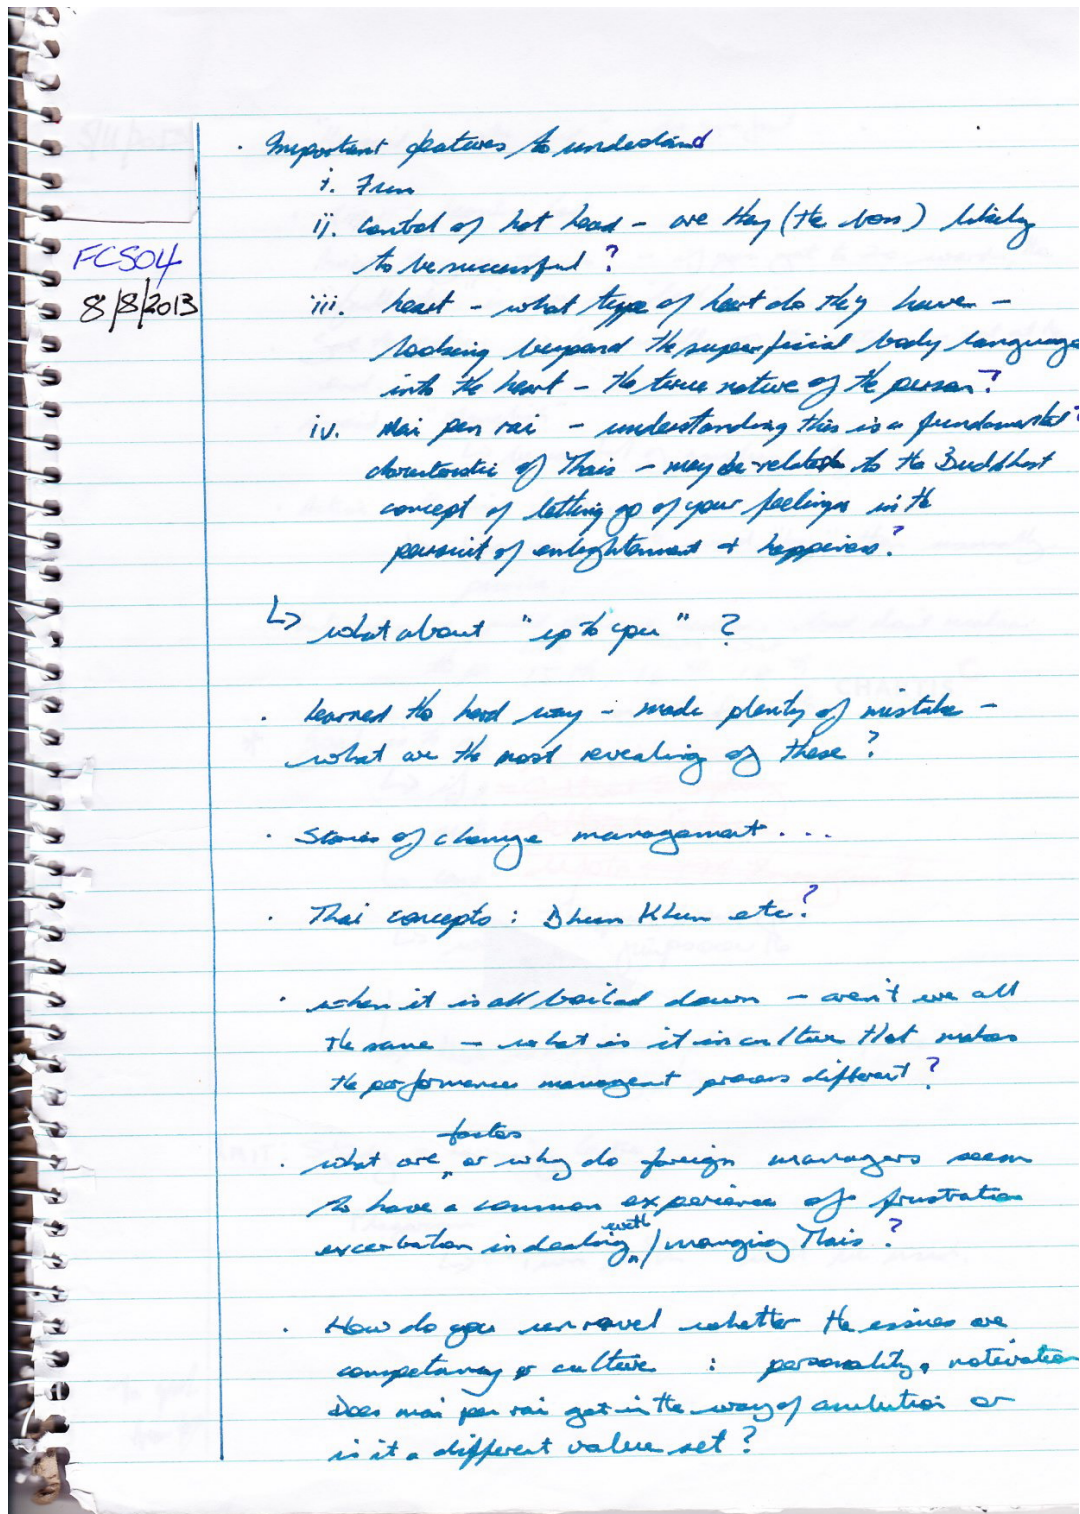 FCS04
8/8/2013
· Important features to understand
i. Fun
ii. control of hot head – are they (the boss) likely
to be successful?
iii. heart – what type of heart do they have –
looking beyond the superficial body language
into the heart – the true nature of the person?
iv. Mai pen rai – understanding this is a fundamental
characteristic of Thais – may be related to the Buddhist
concept of letting go of your feelings in the
pursuit of enlightenment + happiness?
↳ what about "up to you" ?
· learned the hard way – made plenty of mistake –
what are the most revealing of these?
· Stories of change management...
· Thai concepts : Bhun Khun etc?
· when it is all boiled down – aren't we all
the same – what is it in culture that makes
the performances managent process different?
factors
· what are ^ or why do foreign managers seem
to have a common experience of frustration
in dealing with ^ / managing Thais?
· How do you unravel whether the issues are
competency or culture : personality, motivation
Does mai pen rai get in the way of ambition or
is it a different value set?